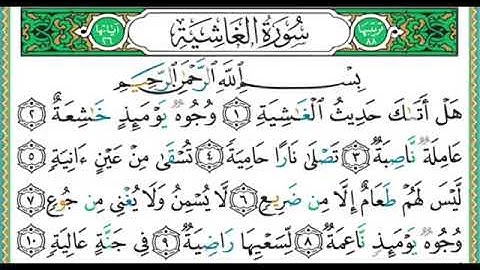 ترتيبها ٨٨ سُورَةُ الغَاشِيَةِ آياتها ٢٦
بِسْمِ اللَّهِ الرَّحْمَٰنِ الرَّحِيمِ
هَلْ أَتَىٰكَ حَدِيثُ الْغَٰشِيَةِ ١ وُجُوهٌ يَوْمَئِذٍ خَٰشِعَةٌ ٢
عَامِلَةٌ نَّاصِبَةٌ ٣ تَصْلَىٰ نَارًا حَامِيَةً ٤ تُسْقَىٰ مِنْ عَيْنٍ ءَانِيَةٍ ٥
لَّيْسَ لَهُمْ طَعَامٌ إِلَّا مِن ضَرِيعٍ ٦ لَّا يُسْمِنُ وَلَا يُغْنِي مِن جُوعٍ ٧
وُجُوهٌ يَوْمَئِذٍ نَّاعِمَةٌ ٨ لِّسَعْيِهَا رَاضِيَةٌ ٩ فِي جَنَّةٍ عَالِيَةٍ ١٠